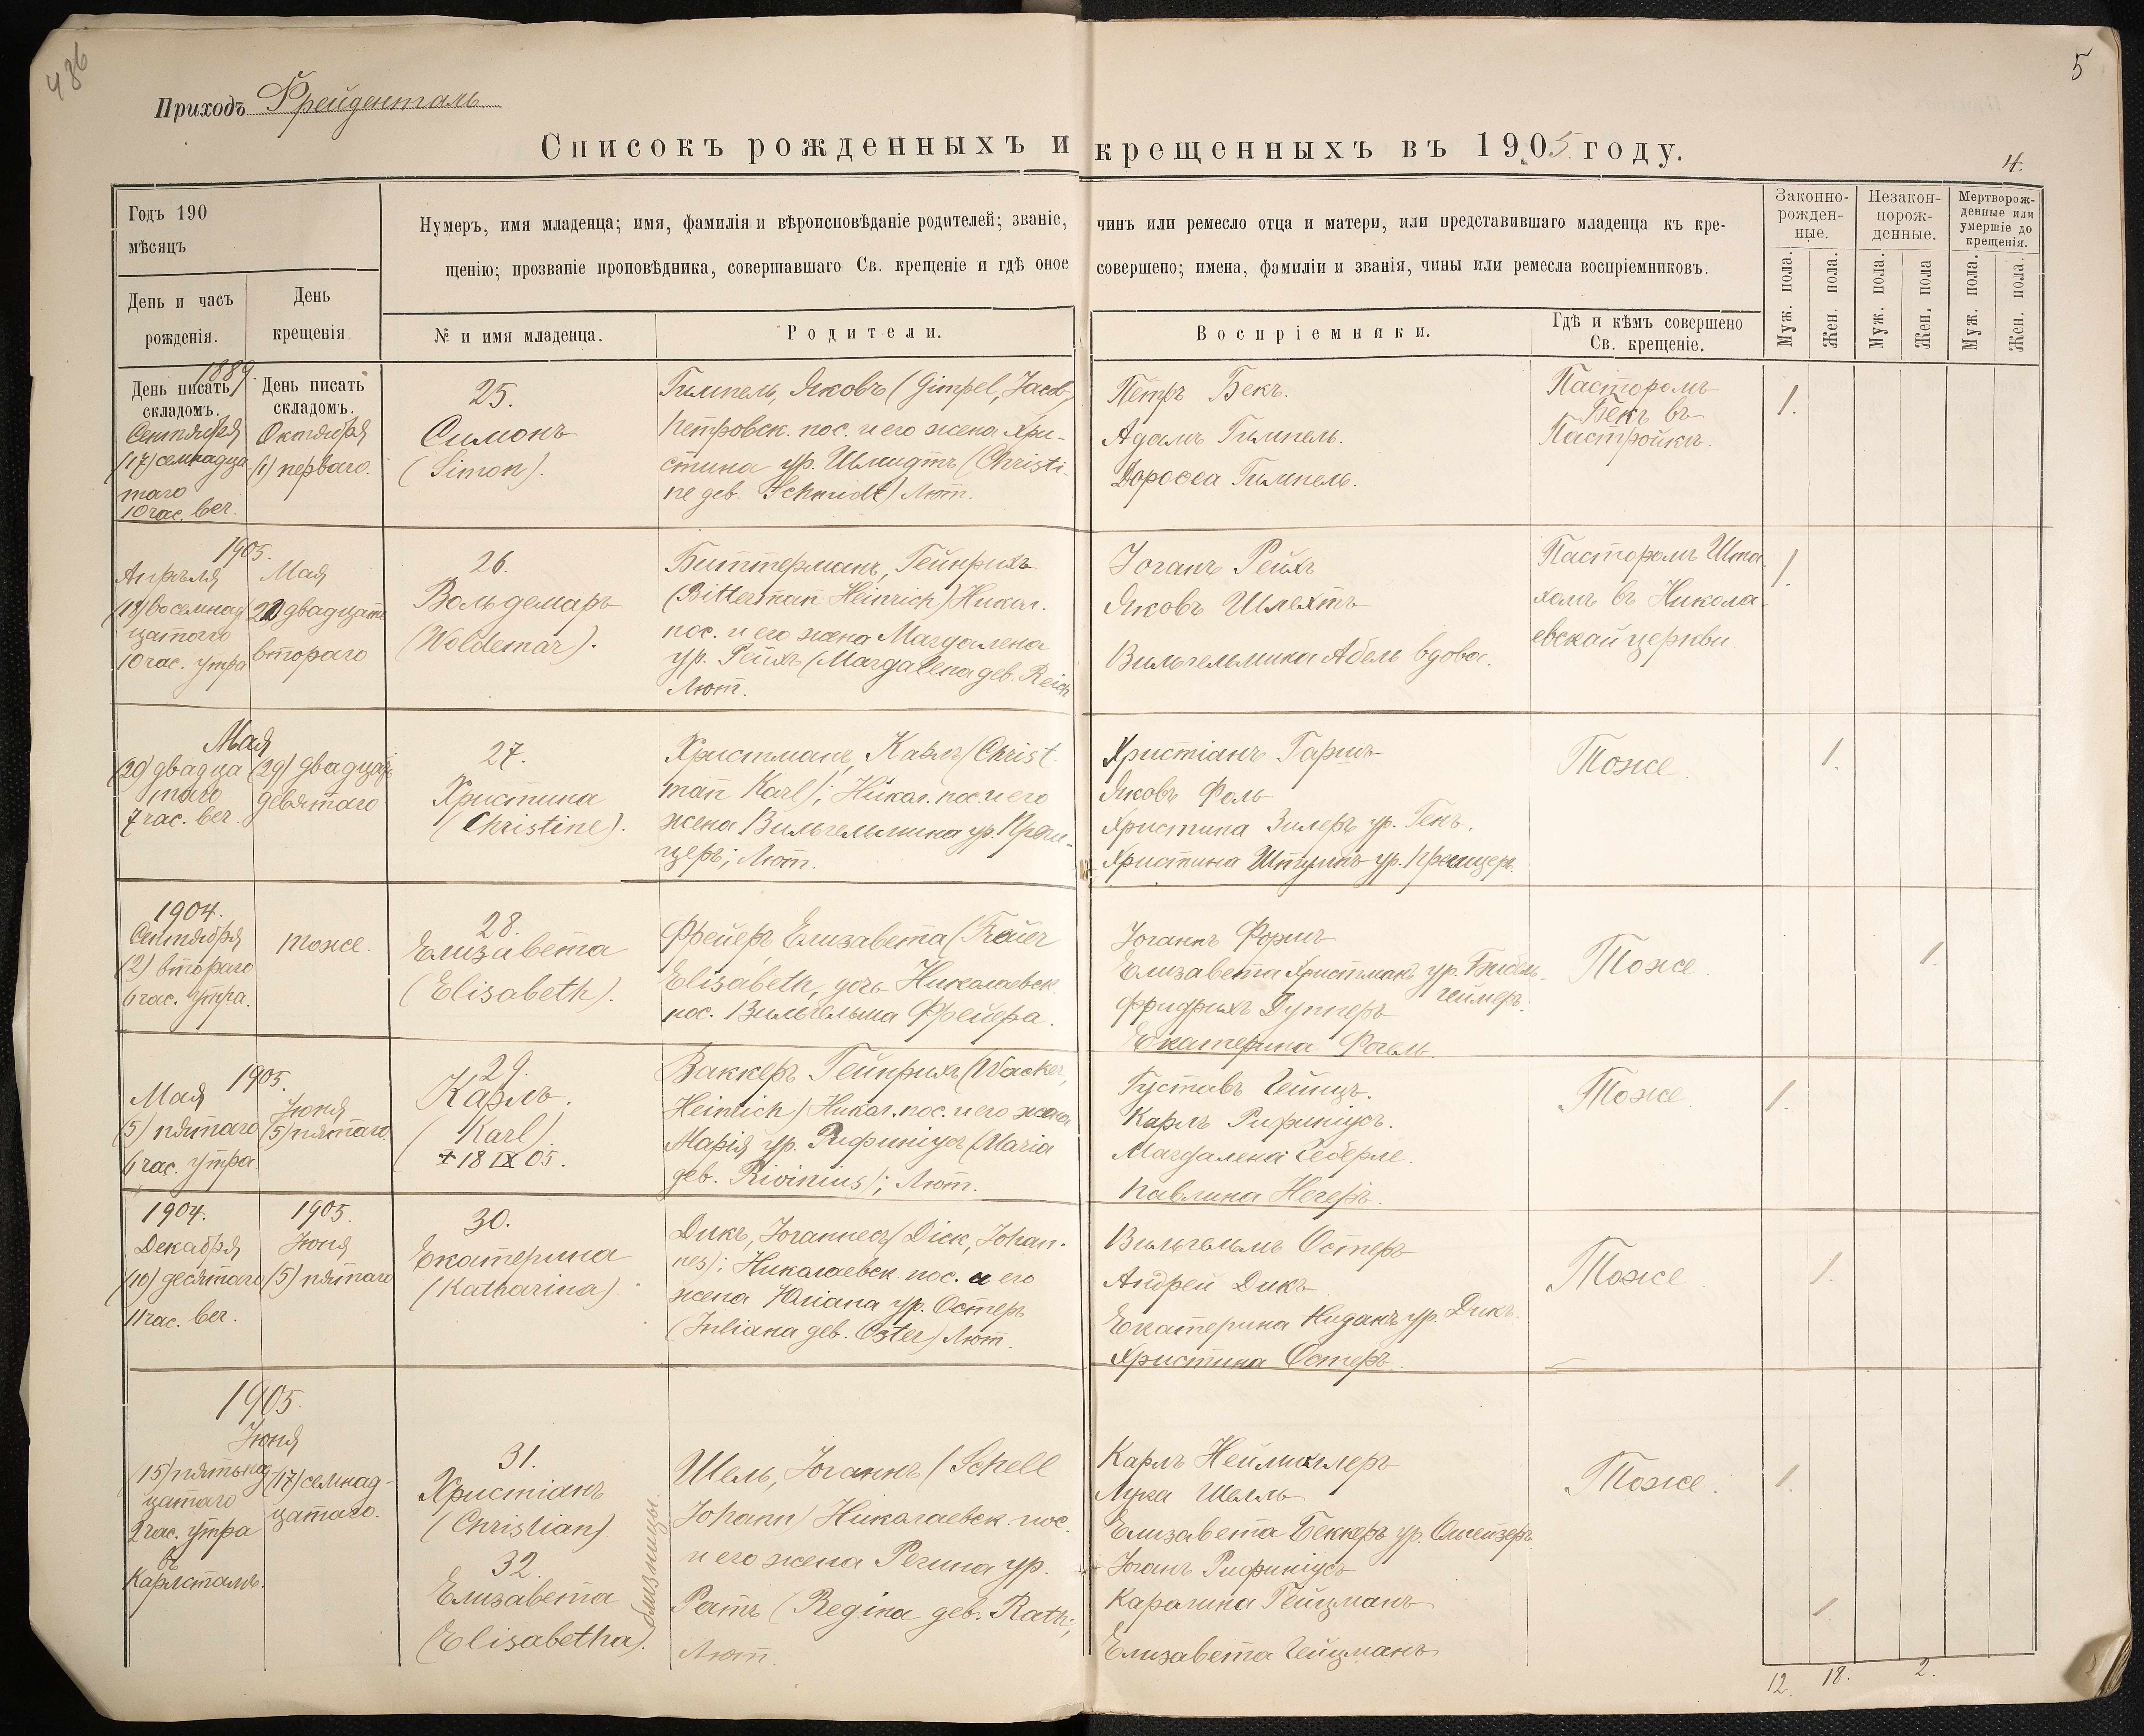 486
5
Приходъ Фрейденталь
Списокъ рожденныхъ и крещенныхъ въ 1905 году.
4.
Годъ 190
мѣсяцъ
Нумеръ, имя младенца; имя, фамилія и вѣроисповѣданіе родителей; званіе, чинъ или ремесло отца и матери, или представившаго младенца къ кре-
щенію; прозваніе проповѣдника, совершавшаго Св. крещеніе и гдѣ оное совершено; имена, фамиліи и званія, чины или ремесла воспріемниковъ.
Законно-
рожден-
ные.
Незакон-
норож-
денные.
Мертворож-
денные или
умершіе до
крещенія.
День и часъ
рожденія.
День
крещенія
№ и имя младенца.
Родители.
Воспріемники.
Гдѣ и кѣмъ совершено
Св. крещеніе.
Муж. пола.
Жен. пола.
Муж. пола.
Жен. пола
Муж. пола.
Жен. пола.
1889
День писать
складомъ.
Сентября
(17) семнадца
таго
10 час. веч.
День писать
складомъ.
Октября
(1) перваго.
25.
Симонъ
(Simon).
Гимпель, Яковъ (Gimpel, Jacob)
Петровск. пос. и его жена Хри-
стина ур. Шмидтъ (Christi-
ne geb. Schmidt) Лют.
Петръ Бекъ.
Адамъ Гимпель.
Доротея Гимпель.
Пасторомъ
Бекъ въ
1.
1905.
Апрѣля
(18) восемнад
цатого
10 час. утра
Мая
двадцать
второго
26.
Вольдемаръ
(Woldemar).
Биттерманъ, Гейнрихъ
(Bitterman Heinrich) Никол.
пос. и его жена Магдалена
ур. Рейхъ (Magdalena geb. Reich
Лют.
Іоганъ Рейхъ
Яковъ Шлехтъ
Вильгельмина Абель вдова.
Пасторомъ Шта
хомъ въ Никола-
евской церкви
1.
Мая
(20) двадца
таго
7 час. веч.
(29) двадцать
девятаго
27.
Христина
(Christine).
Христманъ, Карлъ (Christ-
man Karl); Никол. пос. и его
жена Вильгельмина ур. Прей-
церъ; Лют.
Христіанъ Гаршъ
Яковъ Фоль
Христина Зилеръ ур. Генъ.
Христина Штумпъ ур. Прейцеръ
Тоже
1.
1904.
Сентября
(2) втораго
6 час. утра.
тоже.
28.
Елизавета
(Elisabeth).
Фрейеръ Елизавета (Freier
Elisabeth, дочь Николаевск.
пос. Вильгельма Фрейера.
Іоганнъ Форшъ
Елизавета Христманъ ур. Бибель-
геймеръ.
Фридрихъ Дупперъ
Екатерина Фогель.
Тоже
1.
1905.
Мая
(5) пятаго
6 час. утра.
Іюня
(5) пятаго.
29.
Карлъ.
(Karl).
+18 IX 05.
Ваккеръ Гейнрихъ (Wacker,
Heinrich) Никол. пос. и его жена
Марія ур. Рифиніусъ (Maria
geb. Rivinius); Лют.
Густавъ Гейнцъ.
Карлъ Рифиніусъ.
Магдалена Геберле.
Павлина Негеръ.
Тоже
1.
1904.
Декабря
(10) десятаго
11 час. веч.
1905.
Іюня
(5) пятаго
30.
Екатерина
(Katharina).
Дикъ, Іоганнесъ (Dick, Johan-
nes); Николаевск. пос. и его
жена Юліана ур. Остеръ
(Juliana geb. Oster) Лют.
Вильгельмъ Остеръ
Андрей Дикъ
Екатерина Ниданъ ур. Дикъ.
Христина Остеръ.
Тоже
1.
1905.
Іюня
15) пятьнад
цатаго
2 час. утра
въ
Карлсталь.
(17) семнад-
цатаго.
31.
Христіанъ
(Christian)
32.
Елизавета
(Elisabetha).
близнецы.
Шель, Іоганнъ (Schell
Johann) Николаевск. пос.
и его жена Регина ур.
Ратъ (Regina geb. Rath;
Лют.
Карлъ Неймиллеръ
Лука Шелль
Елизавета Беккеръ ур.
Іоганъ Рифиніусъ
Каролина Гейцманъ
Елизавета Гейцманъ
Тоже.
1.
1.
12. 18. 2.